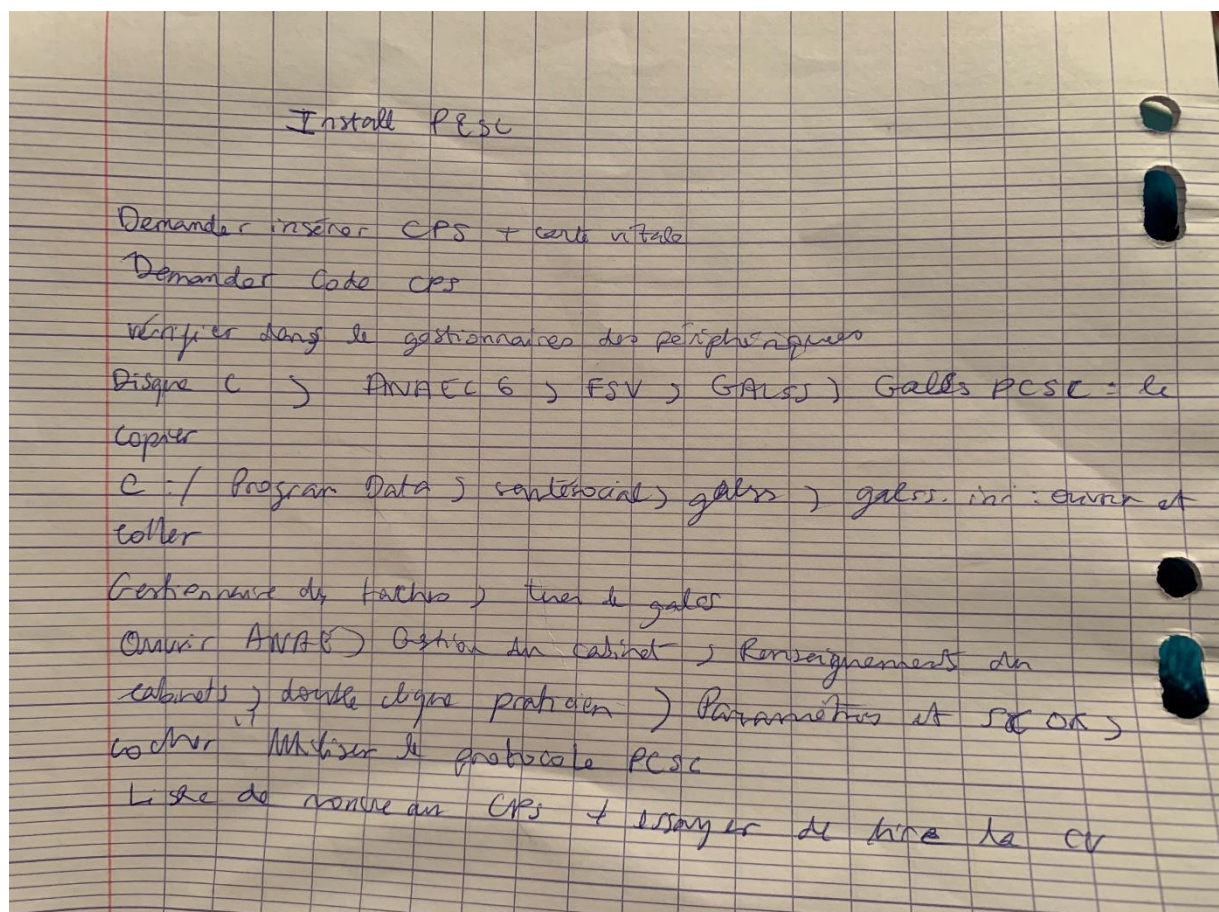 Install PCSC
Demander insérer CPS + carte vitale
Demander Code CPS
vérifier dans le gestionnaires des périphériques
Disque C > ANAEC 6 > FSV > GALSS > Galss PCSC = le
copier
C:/ Program Data > santesocial > galss > galss.ini : ouvrir et
coller
Gestionnaire des taches > tuer le galss
Ouvrir ANAE > Gestion du cabinet > Renseignement du
cabinets > double clique praticien > Paramètres et OK >
cocher Utiliser le protocole PCSC
Lire de nouveau CPS + essayer de lire la CV